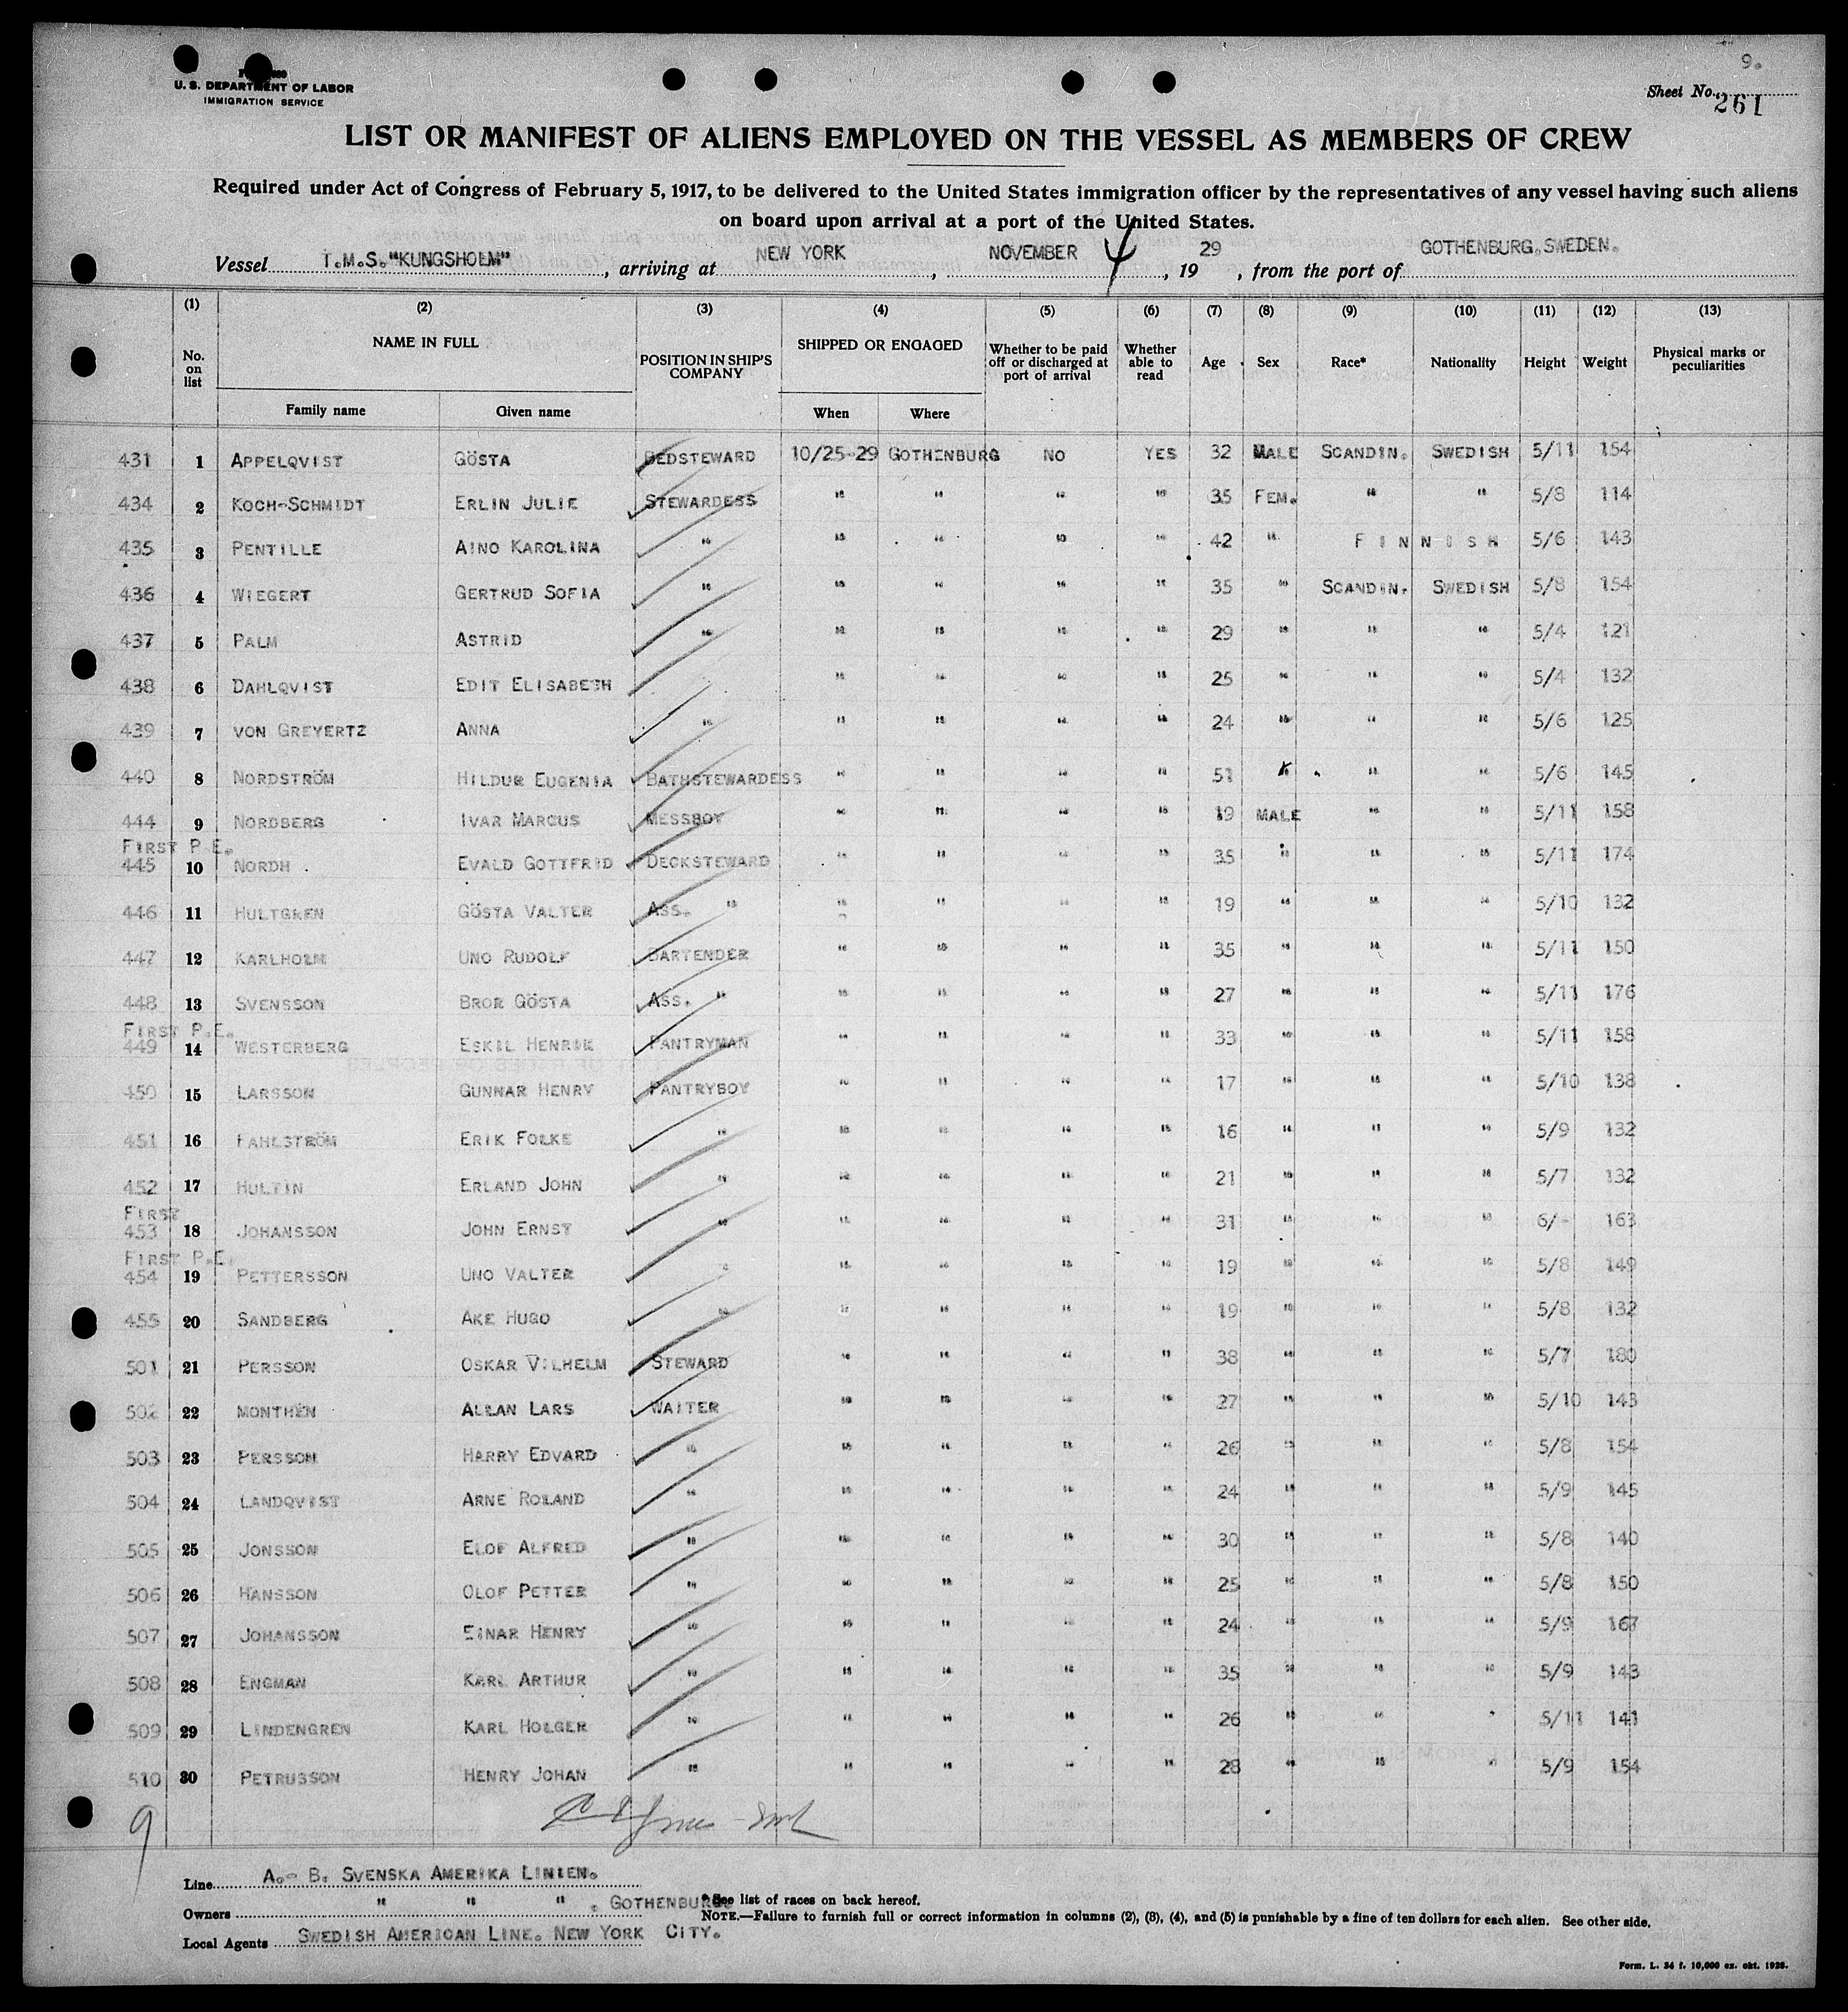 9.
U. S. DEPARTMENT OF LABOR
IMMIGRATION SERVICE
Sheet No. 261
LIST OR MANIFEST OF ALIENS EMPLOYED ON THE VESSEL AS MEMBERS OF CREW
Required under Act of Congress of February 5, 1917, to be delivered to the United States immigration officer by the representatives of any vessel having such aliens
on board upon arrival at a port of the United States.
Vessel T.M.S."KUNGSHOLM", arriving at NEW YORK, NOVEMBER 4, 19 29, from the port of GOTHENBURG.SWEDEN.
(1) (2) (3) (4) (5) (6) (7) (8) (9) (10) (11) (12) (13)
No. on list NAME IN FULL POSITION IN SHIP'S COMPANY SHIPPED OR ENGAGED Whether to be paid off or discharged at port of arrival Whether able to read Age Sex Race* Nationality Height Weight Physical marks or peculiarities
Family name Given name When Where
431 1 APPELQVIST GÖSTA BEDSTEWARD 10/25-29 GOTHENBURG NO YES 32 MALE SCANDIN. SWEDISH 5/11 154
434 2 KOCH-SCHMIDT ERLIN JULIE STEWARDESS " " " " 35 FEM. " " 5/8 114
435 3 PENTILLE AINO KAROLINA " " " " " 42 " FINNISH 5/6 143
436 4 WIEGERT GERTRUD SOFIA " " " " " 35 " SCANDIN. SWEDISH 5/8 154
437 5 PALM ASTRID " " " " " 29 " " " 5/4 121
438 6 DAHLQVIST EDIT ELISABETH " " " " 25 " " " 5/4 132
439 7 VON GREYERTZ ANNA " " " " " 24 " " " 5/6 125
440 8 NORDSTRÖM HILDUR EUGENIA BATHSTEWARDESS " " " " 51 " " " 5/6 145
444 9 NORDBERG IVAR MARCUS MESSBOY " " " " 19 MALE " " 5/11 158
FIRST P.E.
445 10 NORDH EVALD GOTTFRID DECKSTEWARD " " " " 35 " " " 5/11 174
446 11 HULTGREN GÖSTA VALTER ASS. " " " " " 19 " " " 5/10 132
447 12 KARLHOLM UNO RUDOLF BARTENDER " " " " 35 " " " 5/11 150
448 13 SVENSSON BROR GÖSTA ASS. " " " " " 27 " " " 5/11 176
FIRST P.E.
449 14 WESTERBERG ESKIL HENRIK PANTRYMAN " " " " 33 " " " 5/11 158
450 15 LARSSON GUNNAR HENRY PANTRYBOY " " " " 17 " " " 5/10 138
451 16 FAHLSTRÖM ERIK FOLKE " " " " " 16 " " " 5/9 132
452 17 HULTIN ERLAND JOHN " " " " " 21 " " " 5/7 132
FIRST
453 18 JOHANSSON JOHN ERNST " " " " " 31 " " " 6/- 163
FIRST P.E.
454 19 PETTERSSON UNO VALTER " " " " " 19 " " " 5/8 149
455 20 SANDBERG AKE HUGO " " " " " 19 " " " 5/8 132
501 21 PERSSON OSKAR VILHELM STEWARD " " " " 38 " " " 5/7 180
502 22 MONTHEN ALLAN LARS WAITER " " " " 27 " " " 5/10 143
503 23 PERSSON HARRY EDVARD " " " " " 26 " " " 5/8 154
504 24 LANDQVIST ARNE ROLAND " " " " " 24 " " " 5/9 145
505 25 JONSSON ELOF ALFRED " " " " " 30 " " " 5/8 140
506 26 HANSSON OLOF PETTER " " " " " 25 " " " 5/8 150
507 27 JOHANSSON EINAR HENRY " " " " " 24 " " " 5/9 167
508 28 ENGMAN KARL ARTHUR " " " " " 35 " " " 5/9 143
509 29 LINDENGREN KARL HOLGER " " " " " 26 " " " 5/11 141
510 30 PETRUSSON HENRY JOHAN " " " " " 28 " " " 5/9 154
9
Line A.-B. SVENSKA AMERIKA LINIEN.
Owners " " " . GOTHENBURG.
Local Agents SWEDISH AMERICAN LINE. NEW YORK CITY.
* See list of races on back hereof.
NOTE.—Failure to furnish full or correct information in columns (2), (3), (4), and (5) is punishable by a fine of ten dollars for each alien. See other side.
Form. L. 34 f. 10,000 ex. okt. 1928.